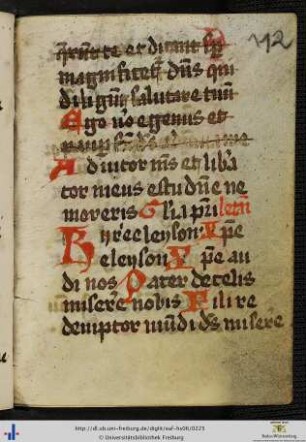 112
magnificet᷑ dn̄s qui
diligūt salutare tuū
Ego v̊o egenus et
Adiutor m̄s et lib̄a
tor meus es tu dn̄e ne
moreris Gl̄ia pr̄i letan̄
Kyrieeleyson Xp̄e
eleyson Xp̄e au
di nos Pater de celis
misere nobis Fili re
demptor mūdi ds̄ misere
http://dl.ub.uni-freiburg.de/diglit/waf-hs06/0225
© Universitätsbibliothek Freiburg